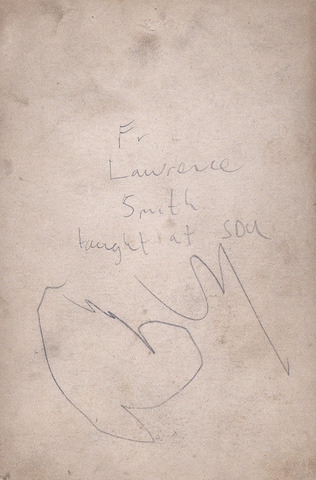 Fr
Lawrence
Smith
taught at SOU